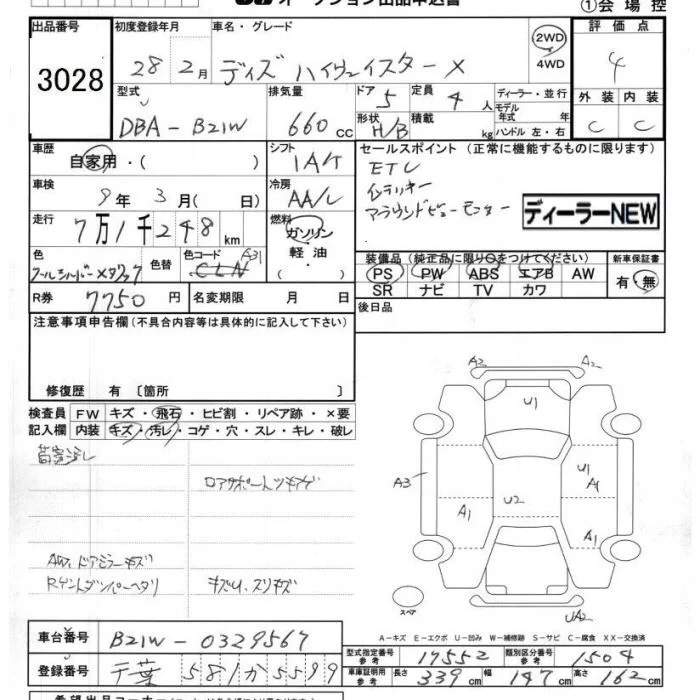 オークション出品申込書
①会場控
出品番号 初度登録年月 車名・グレード 評価点
3028 28 2月 デイズ ハイウェイスター X 2WD 4WD 4
型式 排気量 ドア 5 定員 4人 ディーラー・並行 外装 内装
DBA-B21W 660cc 形状 H/B 積載 kg モデル年式 年式 ハンドル 左・右 C C
車歴 シフト セールスポイント (正常に機能するものに限ります)
自家用・( ) IA/T
車検 冷房
9年 3月( 日) AA/C
アラウンドビューモニター
ディーラーNEW
走行 燃料
7万1千248km ガソリン 軽油
色 色替 色コード A31
CLN
装備品 (純正品に限り○をつけてください) 新車保証書
PS PW ABS エアB AW 有・無
SR ナビ TV カワ
R券 7750円 名変期限 月 日 後日品
注意事項申告欄(不具合内容等は具体的に記入して下さい)
修復歴 有 〔箇所 〕
検査員 FW キズ・飛石・ヒビ割・リペア跡・×要
記入欄 内装 キズ・汚レ・コゲ・穴・スレ・キレ・破レ
A3 A2
U1
U1
A3 A1
U2
A1 A1
ドアミラーキズ
キズU、スリキズ
スペア UA2
A-キズ E-エクボ U-凹み W-補修跡 S-サビ C-腐食 XX-交換済
車台番号 B21W-0329567
型式指定番号 参考 17552 類別区分番号 参考 1504
登録番号 千葉 581か5599
車庫証明用 参考 長さ 339cm 幅 147cm 高さ 162cm